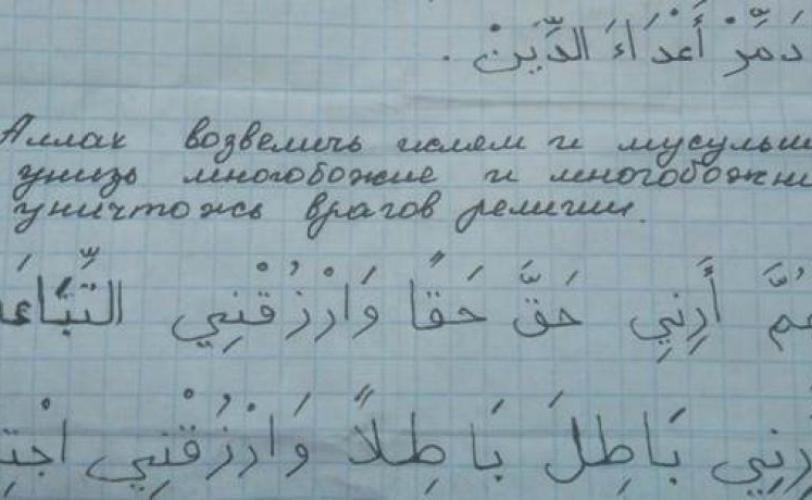 دَمِّرْ أَعْدَاءَ الدِّينْ.
Аллах возвеличь ислам и мусульм
унизь многобожие и многобожни
уничтожь врагов религии.
هُمَّ أَرِنِي حَقَّ حَقًا وَارْزُقْنِي التِّبَّاعَ
رِنِي بَاطِلَ بَاطِلاً وَارْزُقْنِي اجْتِ